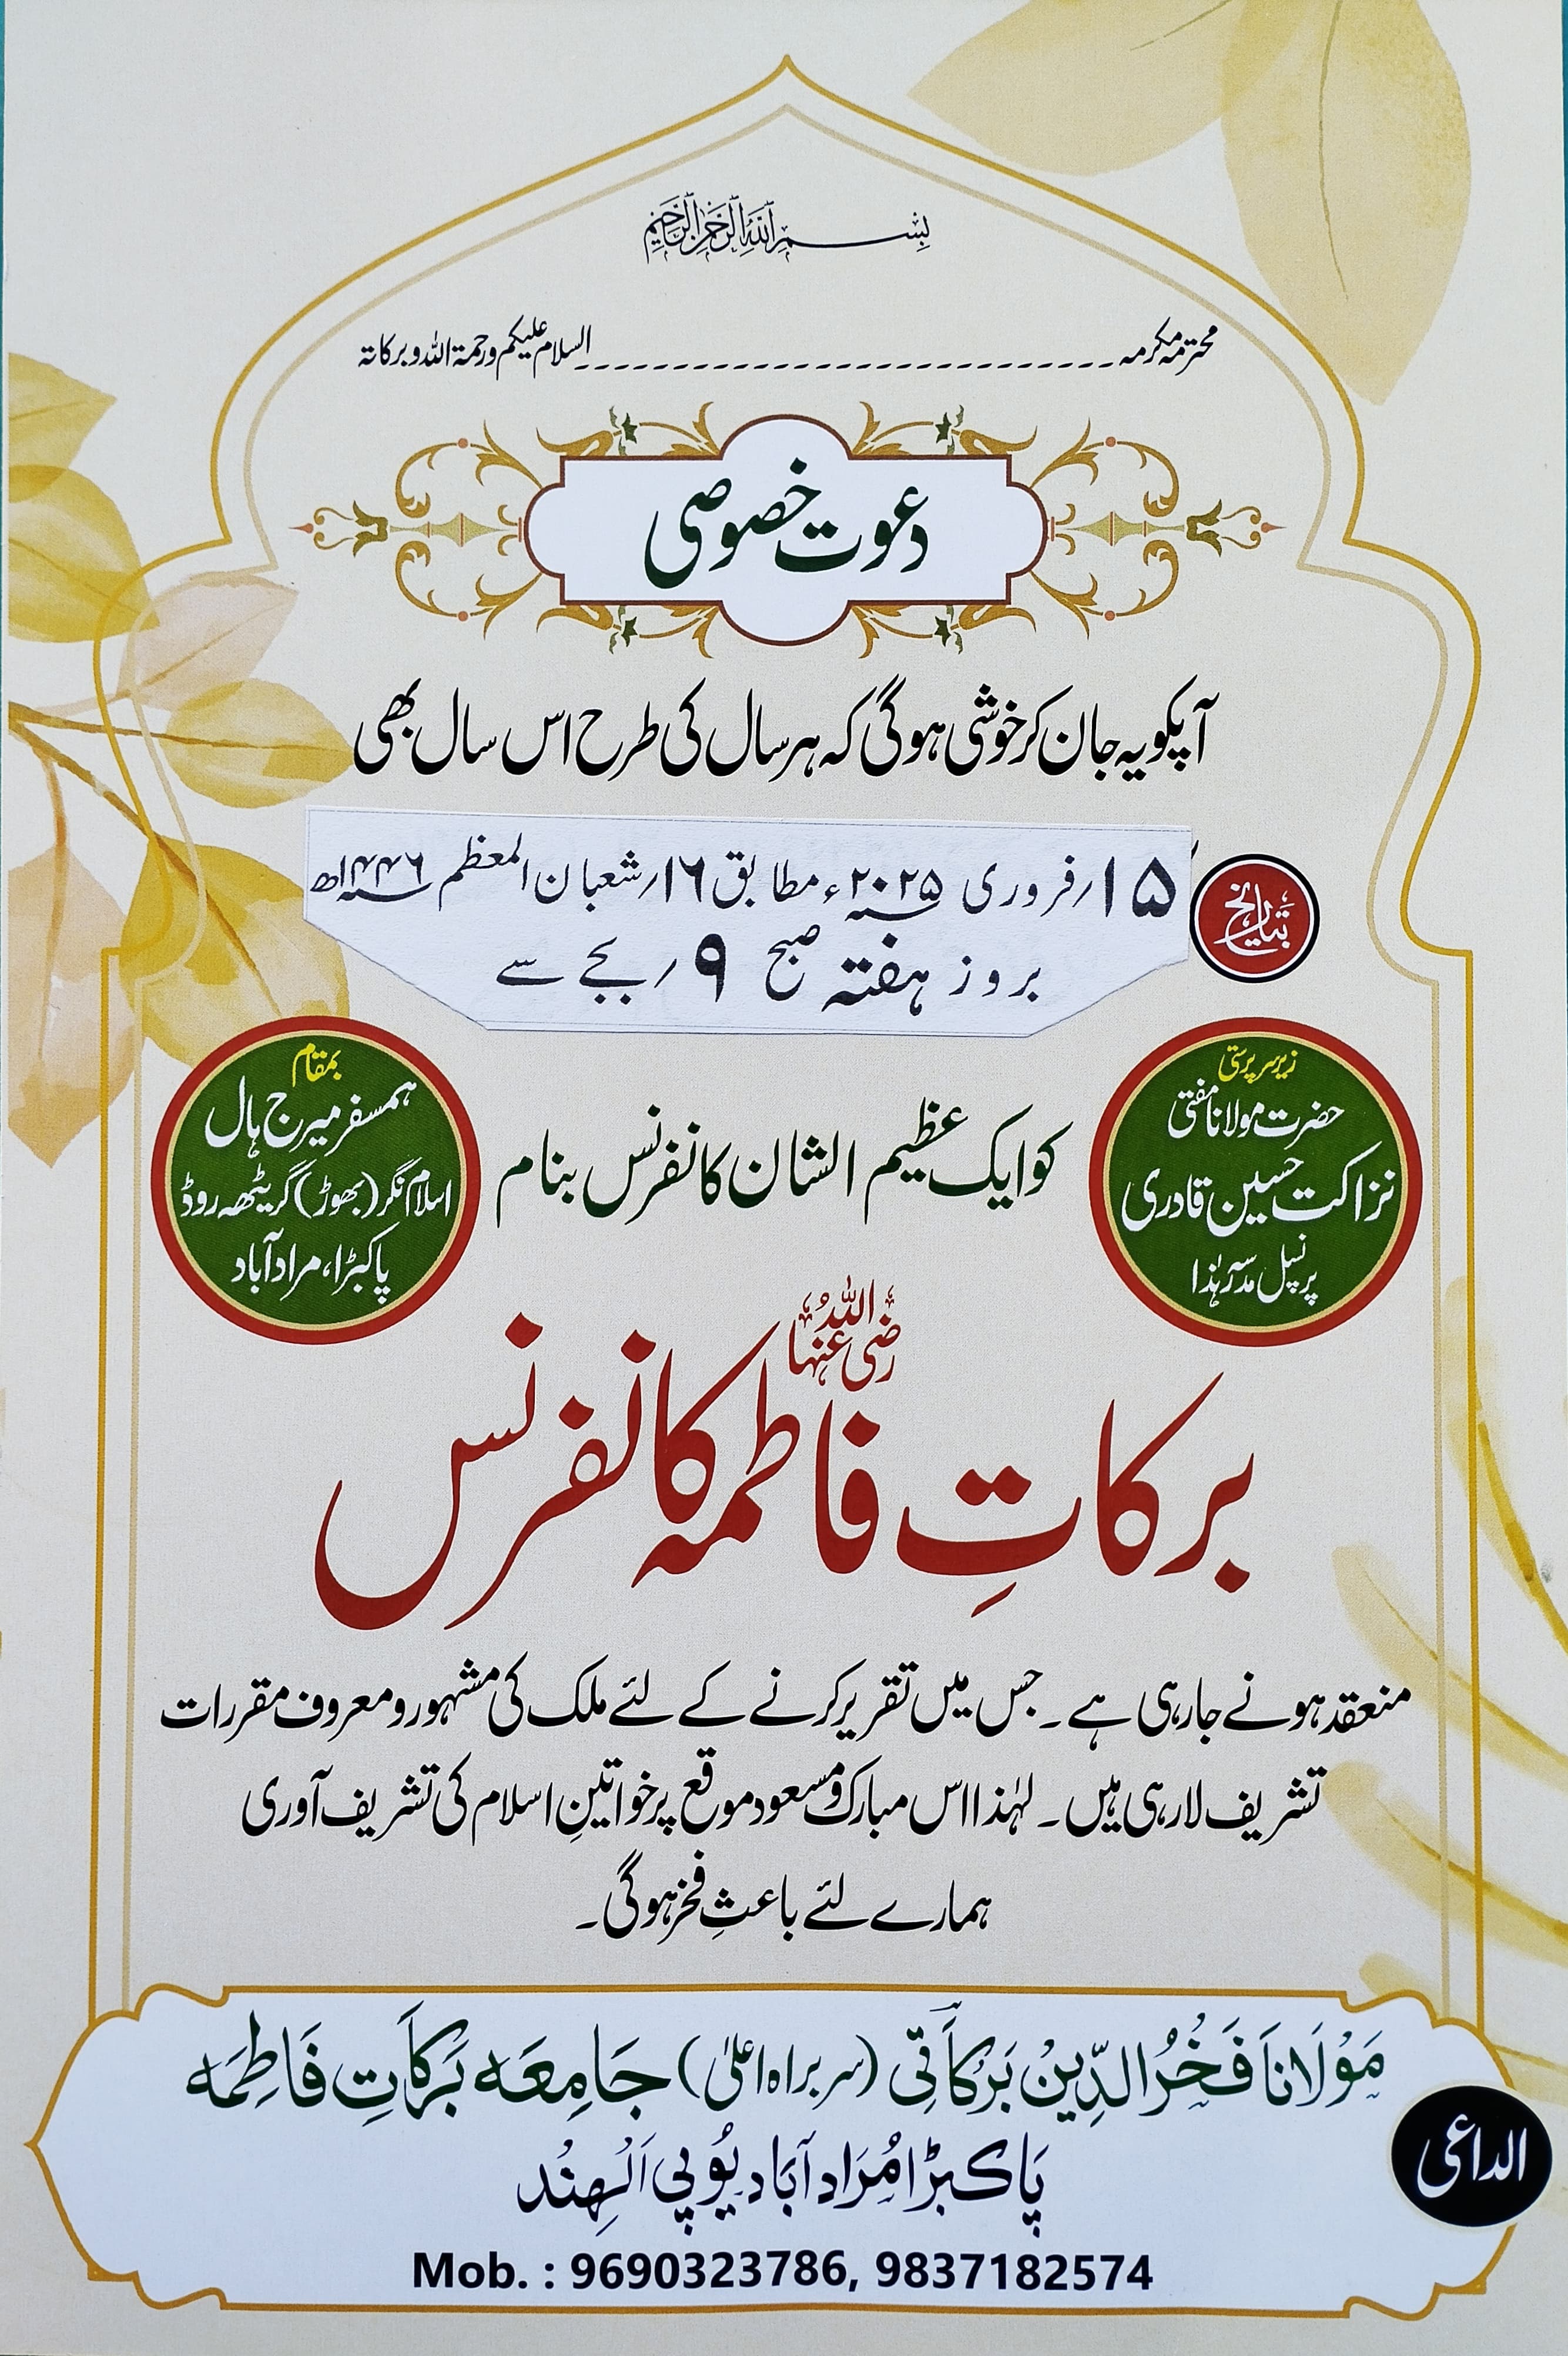 بسم اللہ الرحمن الرحیم
محترمہ مکرمہ ---------------------------- السلام علیکم ورحمۃ اللہ وبرکاتہ
دعوت خصوصی
آپکو یہ جان کر خوشی ہوگی کہ ہر سال کی طرح اس سال بھی
بتاریخ
۱۵/فروری ۲۰۲۵ء مطابق ۱۶/شعبان المعظم ۱۴۴۶ھ
بروز ہفتہ صبح ۹/بجے سے
زیر سرپرستی
حضرت مولانا مفتی
نزاکت حسین قادری
پرنسپل مدرسہ ہٰذا
کو ایک عظیم الشان کانفرنس بنام
بمقام
ہمسفر میرج ہال
اسلام نگر (بھوڑ) گریٹھہ روڈ
پاکبڑا، مرادآباد
رضی اللہ عنہا
برکاتِ فاطمہ کانفرنس
منعقد ہونے جارہی ہے۔ جس میں تقریر کرنے کے لئے ملک کی مشہور و معروف مقررات
تشریف لارہی ہیں۔ لہٰذا اس مبارک و مسعود موقع پر خواتینِ اسلام کی تشریف آوری
ہمارے لئے باعثِ فخر ہوگی۔
الداعی
مَوْلَانَا فَخْرُ الدِّیْنْ بَرْکَاتِی (سربراہ اعلیٰ) جَامِعَہ بَرَکَاتِ فَاطِمَہ
پَاکبڑا مُرَادآبَاد یُوپِی اَلْہِنْد
Mob. : 9690323786, 9837182574